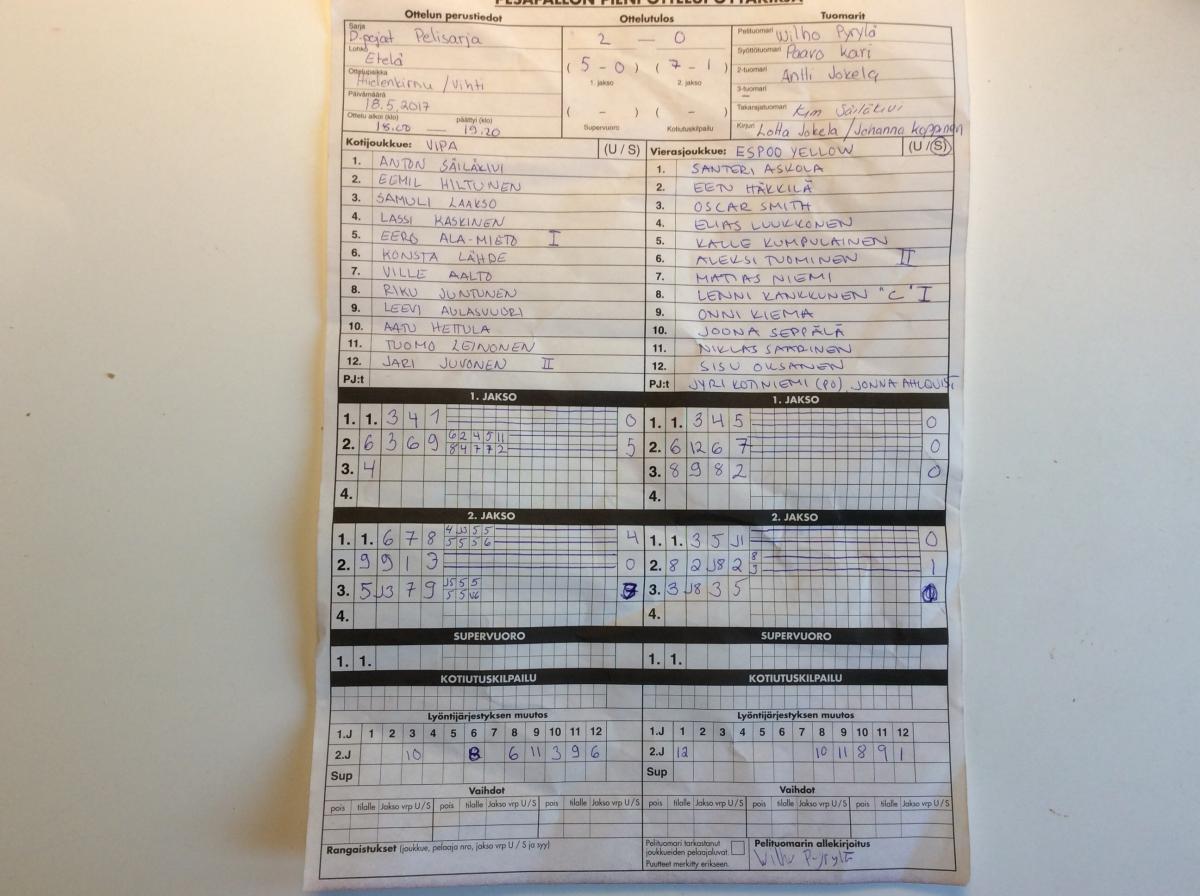 PESÄPALLON PIENPOTTELUPÖYTÄKIRJA
Ottelun perustiedot
Sarja D-pojat Pelisarja
Lohko Etelä
Ottelupaikka Hiidenkirnu /Vihti
Päivämäärä 18.5.2017
Ottelu alkoi (klo) päättyi (klo)
18.00 — 19.20
Ottelutulos
2 — 0
( 5 - 0 ) ( 7 - 1 )
1. jakso 2. jakso
( - ) ( - )
Supervuoro Kotiutuskilpailu
Tuomarit
Pelituomari Wilho Pyrylä
Syöttötuomari Paavo Kari
2-tuomari Antti Jokela
3-tuomari —
Takarajatuomari Kim Säiläkivi
Kirjuri Lotta Jokela /Johanna Koppinen
Kotijoukkue: VIPA (U / S)
1. ANTON SÄILÄKIVI
2. EEMIL HILTUNEN
3. SAMULI LAAKSO
4. LASSI KASKINEN
5. EERO ALA-MIETO I
6. KONSTA LÄHDE
7. VILLE AALTO
8. RIKU JUNTUNEN
9. LEEVI AULASVUORI
10. AATU HETTULA
11. TUOMO LEINONEN
12. JARI JUVONEN II
PJ:t
Vierasjoukkue: ESPOO YELLOW (U / S)
1. SANTERI ASKOLA
2. EETU HÄKKILÄ
3. OSCAR SMITH
4. ELIAS LUUKKONEN
5. KALLE KUMPULAINEN
6. ALEKSI TUOMINEN II
7. MATIAS NIEMI
8. LENNI KANKKUNEN "C" I
9. ONNI KIEMA
10. JOONA SEPPÄLÄ
11. NIKLAS SAARINEN
12. SISU OKSANEN
PJ:t JYRI KOTINIEMI (PO), JONNA AHLQUIST
1. JAKSO
1. 1. 3 4 1 0
2. 6 3 6 9 6 2 4 5 11 5
8 4 7 7 2
3. 4
4.
1. JAKSO
1. 1. 3 4 5 0
2. 6 12 6 7 0
3. 8 9 8 2 0
4.
2. JAKSO
1. 1. 6 7 8 4 J3 5 5 4
5 5 5 6
2. 9 9 1 3 0
3. 5 J3 7 9 J5 5 5
5 5 J6
4.
2. JAKSO
1. 1. 3 5 J1 0
2. 8 2 J8 2 8 1
9
3. 3 J8 3 5
4.
SUPERVUORO
1. 1.
SUPERVUORO
1. 1.
KOTIUTUSKILPAILU
KOTIUTUSKILPAILU
Lyöntijärjestyksen muutos
1.J 1 2 3 4 5 6 7 8 9 10 11 12
2.J 10 8 6 11 3 9 6
Sup
Lyöntijärjestyksen muutos
1.J 1 2 3 4 5 6 7 8 9 10 11 12
2.J 12 10 11 8 9 1
Sup
Vaihdot
pois tilalle Jakso vrp U / S pois tilalle Jakso vrp U / S pois tilalle Jakso vrp U / S
Vaihdot
pois tilalle Jakso vrp U / S pois tilalle Jakso vrp U / S pois tilalle Jakso vrp U / S
Rangaistukset (joukkue, pelaaja nro, jakso vrp U / S ja syy)
Pelituomari tarkastanut
joukkueiden pelaajaluvat.
Puutteet merkitty erikseen.
Pelituomarin allekirjoitus
Wilho Pyrylä